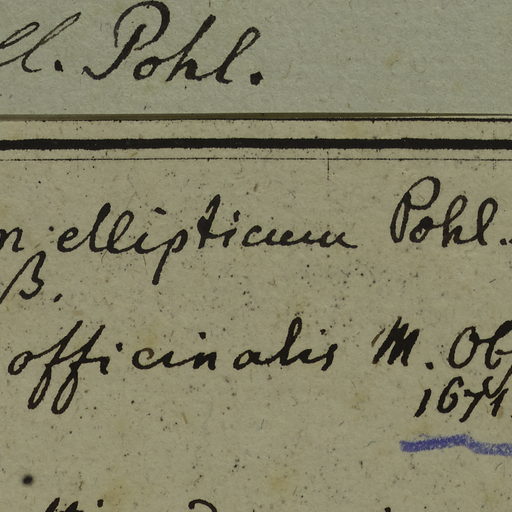 ll. Pohl.
n ellipticum Pohl.
β.
officinalis M. Obs
1671.